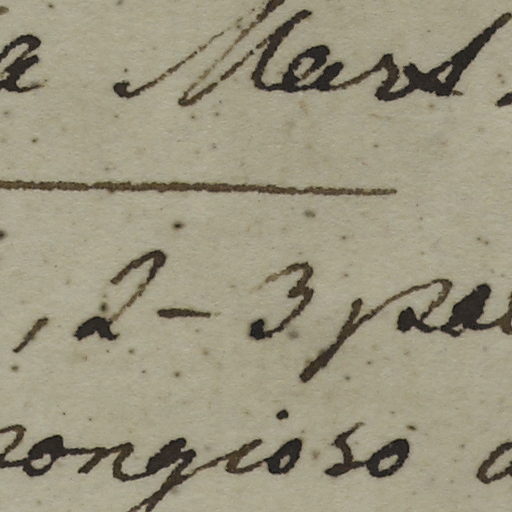 a Mars
, 2-3 pa
rongioso a